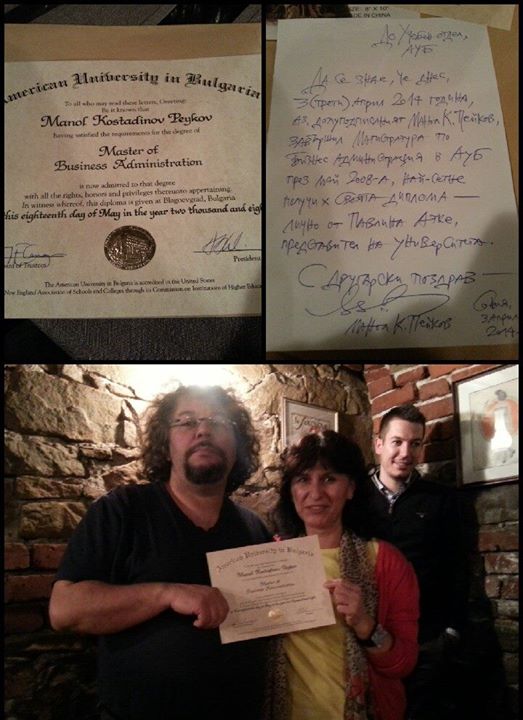 American University in Bulgaria
To all who may read these letters, Greeting:
Be it known that
Manol Kostadinov Peykov
having satisfied the requirements for the degree of
Master of
Business Administration
is now admitted to that degree
with all the rights, honors and privileges thereunto appertaining.
In witness whereof, this diploma is given at Blagoevgrad, Bulgaria
this eighteenth day of May in the year two thousand and eigh
ard of Trustees
President
The American University in Bulgaria is accredited in the United States
New England Association of Schools and Colleges through its Commission on Institutions of Higher Educa
SIZE: 8" X 10"
MADE IN CHINA
До Учебен отдел,
АУБ
Да се знае, че днес,
3 (трети) април 2014 година,
аз, долуподписаният Манол К. Пейков,
завършил магистратура по
бизнес администрация в АУБ
през май 2008-а, най-сетне
получих своята диплома –
лично от Павлина Атке,
представител на университета.
С другарски поздрав –
Манол К. Пейков
София,
3 април
2014
American University in Bulgaria
Manol Kostadinov Peykov
Master of
Business Administration